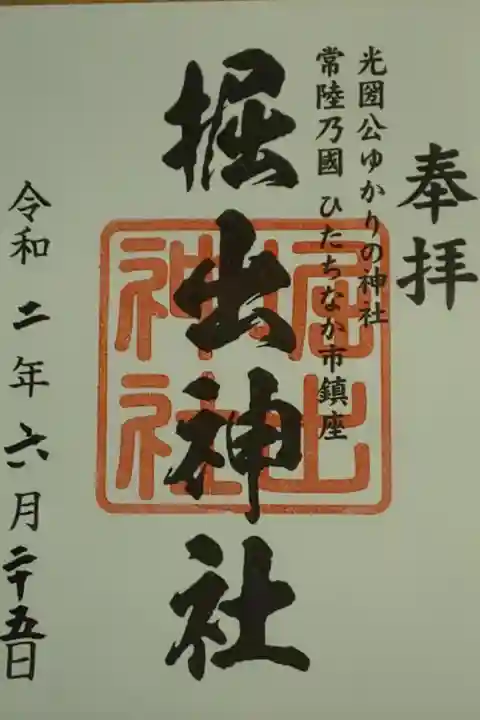 奉拝
光圀公ゆかりの神社
常陸乃國 ひたちなか市鎮座
掘出神社
堀出
神社
令和二年六月二十五日